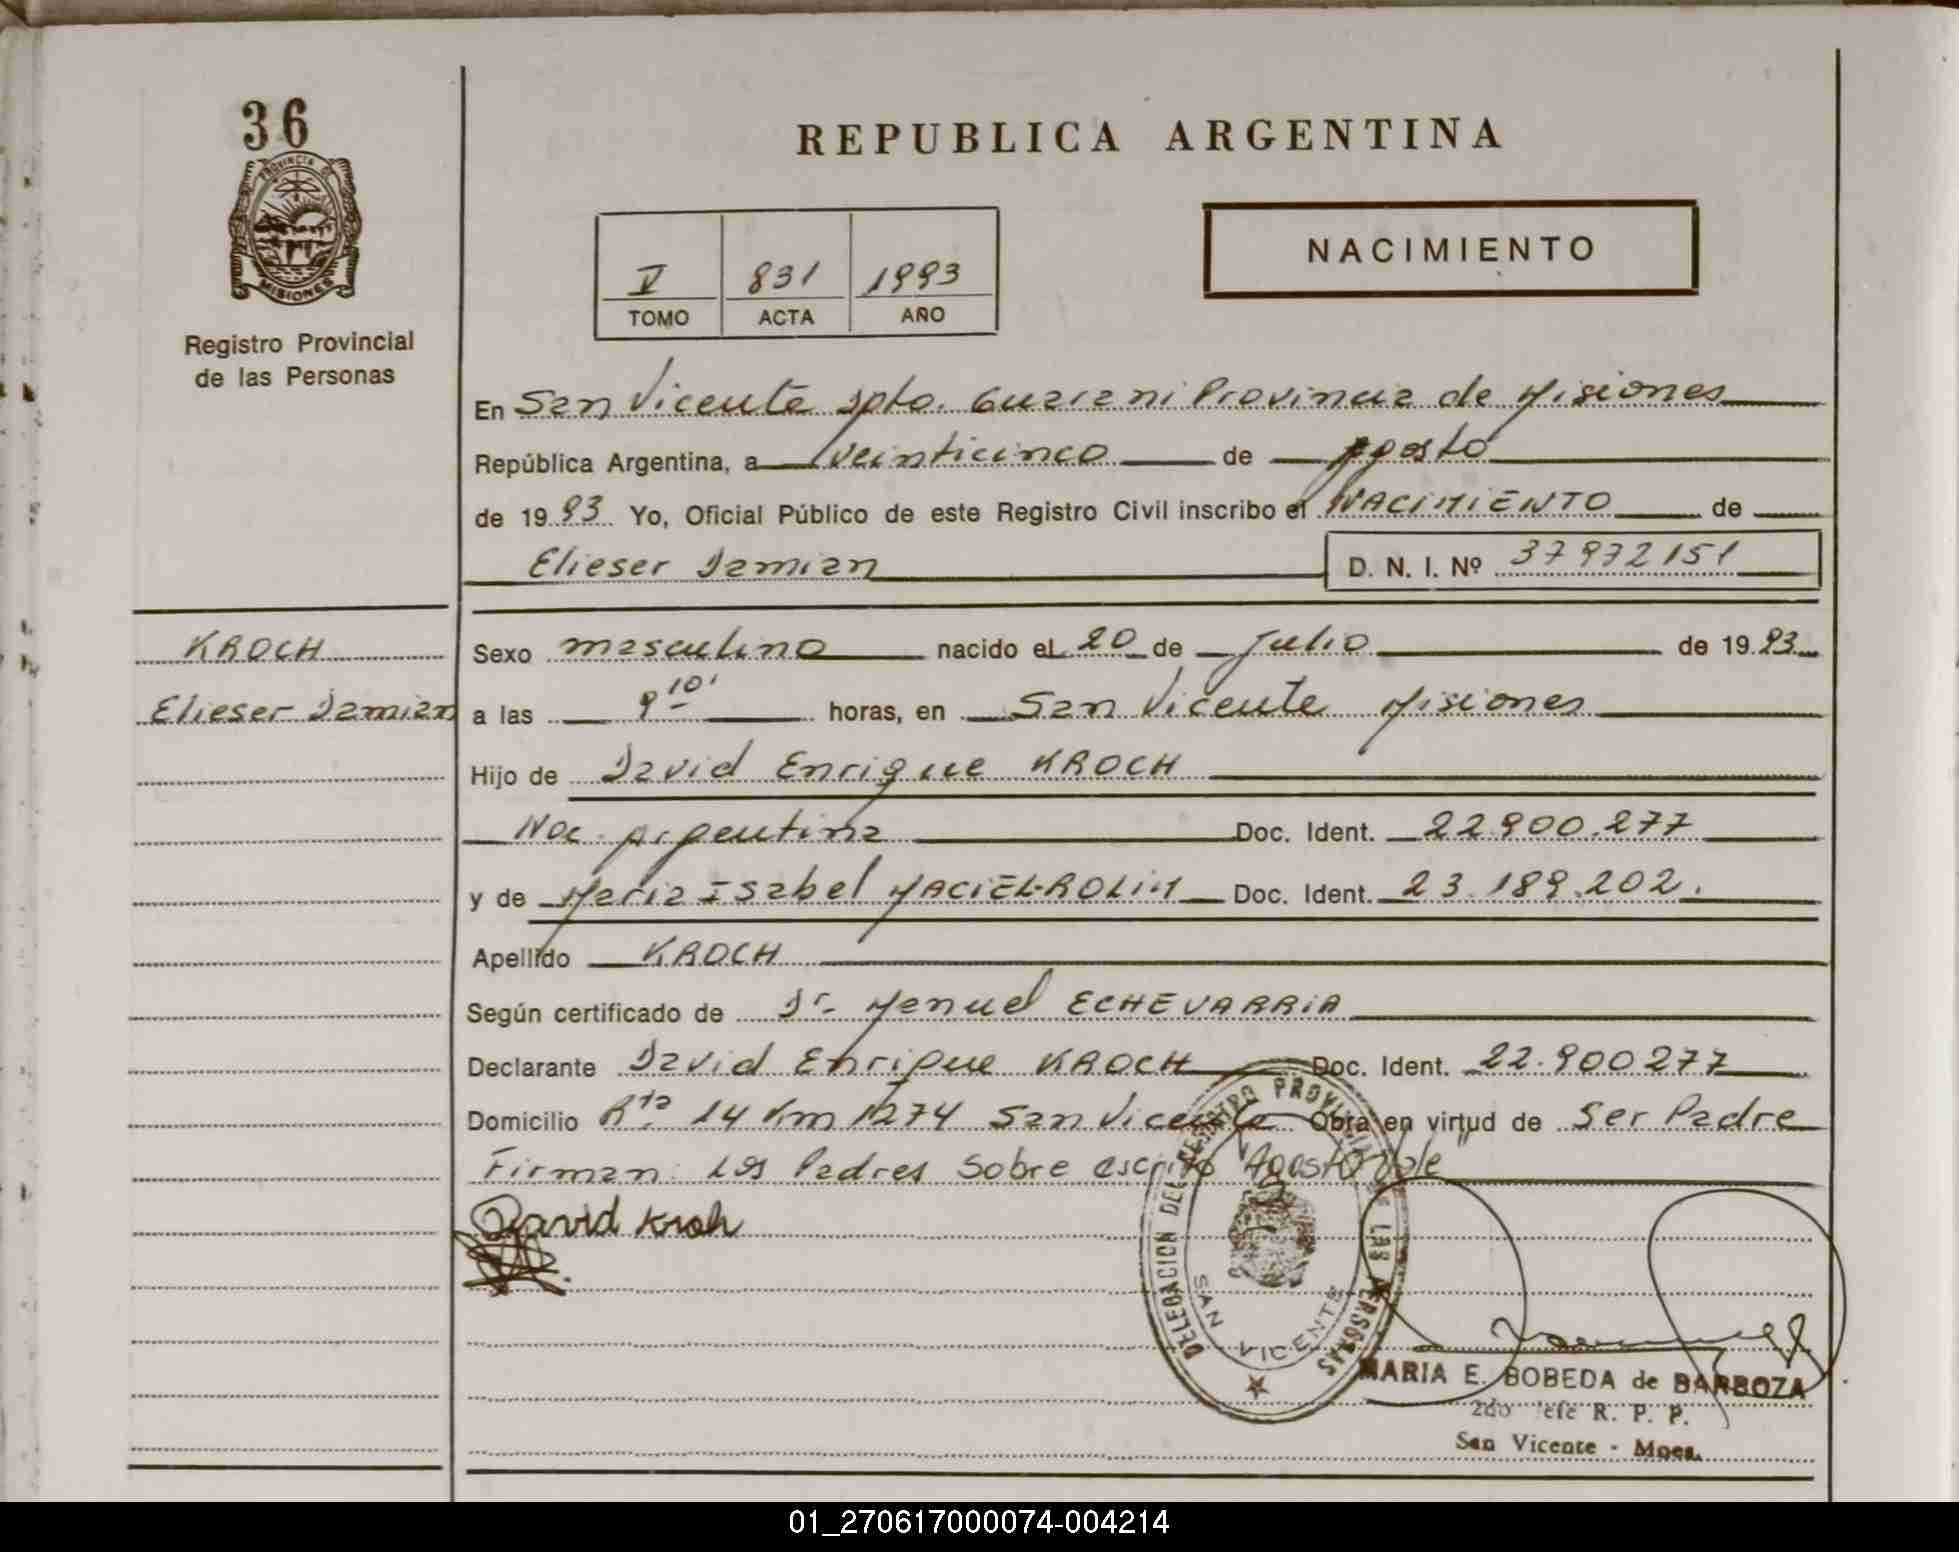 36
PROVINCIA DE
MISIONES
Registro Provincial
de las Personas
REPUBLICA ARGENTINA
NACIMIENTO
V 831 1993
TOMO ACTA AÑO
En San Vicente Dpto. Guarani Provincia de Misiones
República Argentina, a veinticinco de Agosto
de 1993 Yo, Oficial Público de este Registro Civil inscribo el NACIMIENTO de
Elieser Damian D. N. I. Nº 37972151
KROCH
Elieser Damian
Sexo masculino nacido el 20 de Julio de 1993
a las 9 10' horas, en San Vicente Misiones
Hijo de David Enrique KROCH
Nac. Argentina Doc. Ident. 22.900.277
y de Maria Isabel MACIEL-ROLIM Doc. Ident. 23.189.202.
Apellido KROCH
Según certificado de Dr. Manuel ECHEVARRIA
Declarante David Enrique KROCH Doc. Ident. 22.900277
Domicilio Rta 14 Km 1274 San Vicente Obra en virtud de Ser Padre
Firman: Los Padres Sobre escrito "Agosto" Vale
David Kroh
DELEGACION DEL REGISTRO PROVINCIAL DE LAS PERSONAS
SAN VICENTE
MARIA E. BOBEDA de BARBOZA
2do Jefe R. P. P.
San Vicente - Mnes.
01_270617000074-004214